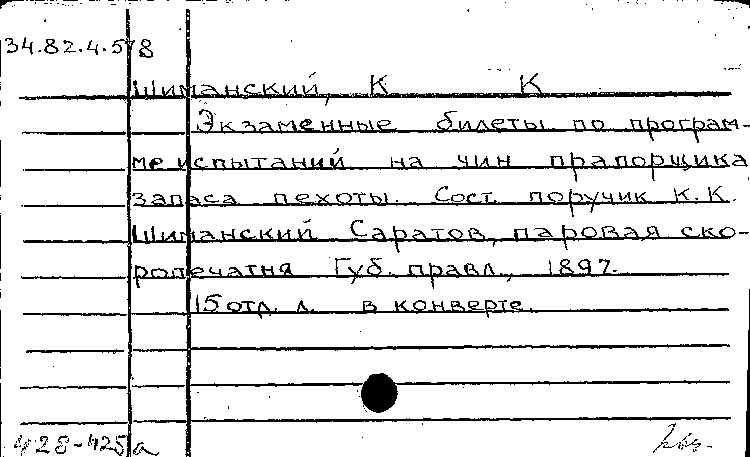 34.82.4.578
Шиманский, К К
Экзаменные билеты по програм-
ме испытаний на чин прапорщика
запаса пехоты. Сост. поручик К.К.
Шиманский Саратов, паровая ско-
ропечатня Губ. правл., 1897.
15 отд. л. в конверте.
428-425а